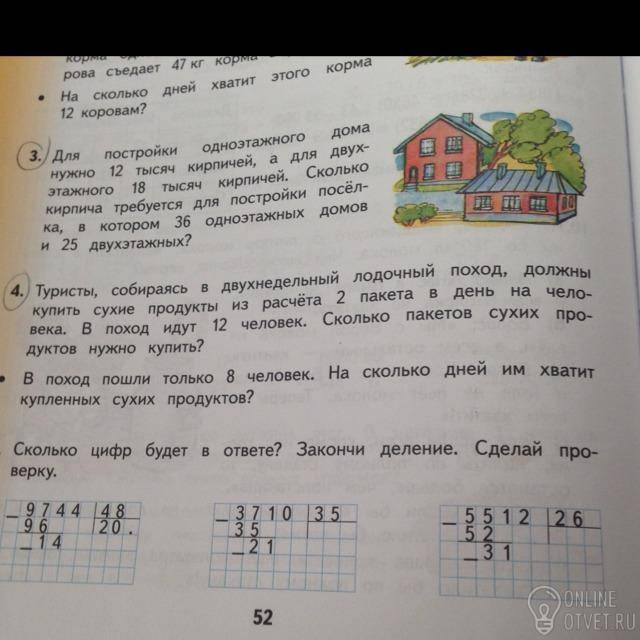 рова съедает 47 кг корма
• На сколько дней хватит этого корма
12 коровам?
3. Для постройки одноэтажного дома
нужно 12 тысяч кирпичей, а для двух-
этажного 18 тысяч кирпичей. Сколько
кирпича требуется для постройки посёл-
ка, в котором 36 одноэтажных домов
и 25 двухэтажных?
4. Туристы, собираясь в двухнедельный лодочный поход, должны
купить сухие продукты из расчёта 2 пакета в день на чело-
века. В поход идут 12 человек. Сколько пакетов сухих про-
дуктов нужно купить?
• В поход пошли только 8 человек. На сколько дней им хватит
купленных сухих продуктов?
Сколько цифр будет в ответе? Закончи деление. Сделай про-
верку.
9744 48 3710 35 5512 26
96 20. 35 52
14 21 31
52
ONLINE
OTVET.RU